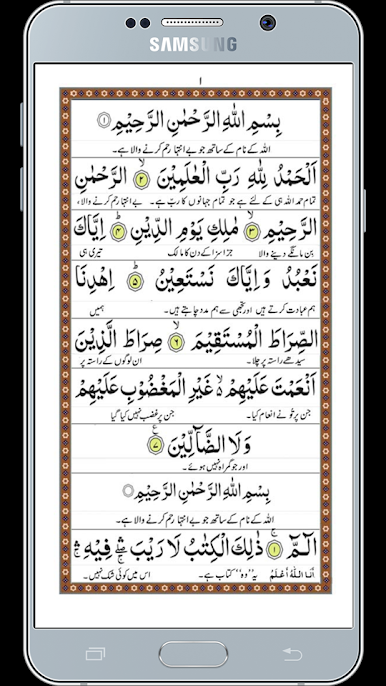 SAMSUNG
ا
بِسْمِ اللّٰهِ الرَّحْمٰنِ الرَّحِيْمِ ۝۱
اللہ کے نام کے ساتھ جو بے انتہا رحم کرنے والا ہے۔
اَلْحَمْدُ لِلّٰهِ رَبِّ الْعٰلَمِيْنَ ۙ۝۲ الرَّحْمٰنِ
تمام حمد اللہ ہی کے لئے ہے جو تمام جہانوں کا رب ہے۔ بے انتہا رحم کرنے والا،
الرَّحِيْمِ ۙ۝۳ مٰلِكِ يَوْمِ الدِّيْنِ ؕ۝۴ اِيَّاكَ
بن مانگے دینے والا جزا سزا کے دن کا مالک تیری ہی
نَعْبُدُ وَ اِيَّاكَ نَسْتَعِيْنُ ؕ۝۵ اِهْدِنَا
ہم عبادت کرتے ہیں اور تجھی سے ہم مدد چاہتے ہیں۔ ہمیں
الصِّرَاطَ الْمُسْتَقِيْمَ ۙ۝۶ صِرَاطَ الَّذِيْنَ
سیدھے راستہ پر چلا۔ ان لوگوں کے راستہ پر
اَنْعَمْتَ عَلَيْهِمْ ۙ۬ غَيْرِ الْمَغْضُوْبِ عَلَيْهِمْ
جن پر تُو نے انعام کیا۔ جن پر غضب نہیں کیا گیا
وَ لَا الضَّآلِّيْنَ ۝۷
اور جو گمراہ نہیں ہوئے۔
بِسْمِ اللّٰهِ الرَّحْمٰنِ الرَّحِيْمِ ۝
اللہ کے نام کے ساتھ جو بے انتہا رحم کرنے والا ہے۔
الٓمّٓ ۚ۝۱ ذٰلِكَ الْكِتٰبُ لَا رَيْبَ ۛۚ فِيْهِ ۛۚ
اَنَا اللّٰهُ اَعْلَمُ یہ ’’وہ‘‘ کتاب ہے۔ اس میں کوئی شک نہیں۔